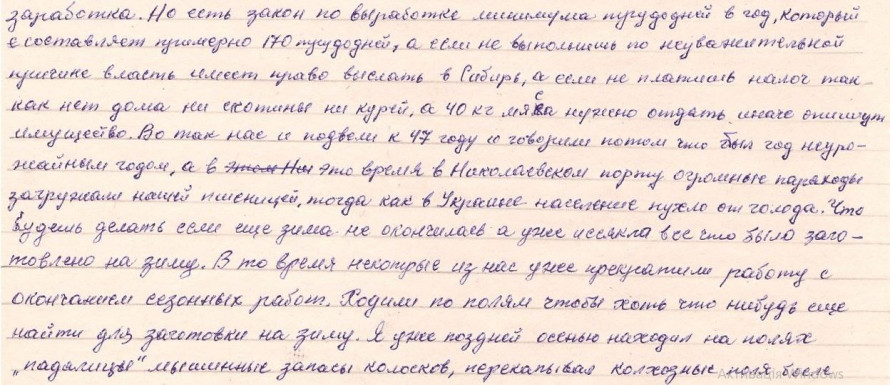 заработка. Но есть закон по выработке минимума трудодней в год, который
с составляет примерно 170 трудодней, а если не выполнишь по неуважительной
причине власть имеет право выслать в Сибирь, а если не платишь налог так
как нет дома ни скотины ни курей, а 40 кг мяса нужно отдать иначе опишут
имущество. Во так нас и подвели к 47 году и говорили потом что был год неуро-
жайным годом, а в этом Ни это время в Николаевском порту огромные пароходы
загружали нашей пшеницей, тогда как в Украине население пухло от голода. Что
будешь делать если еще зима не окончилась а уже иссякла все что было заго-
товлено на зиму. В то время некотрые из нас уже прекратили работу с
окончанием сезонных работ. Ходили по полям чтобы хоть что нибудь еще
найти для заготовки на зиму. Я уже поздней осенью находил на полях
"падалицы" мышинные запасы колосков, перекапывая колхозные поля после
Активація Windows